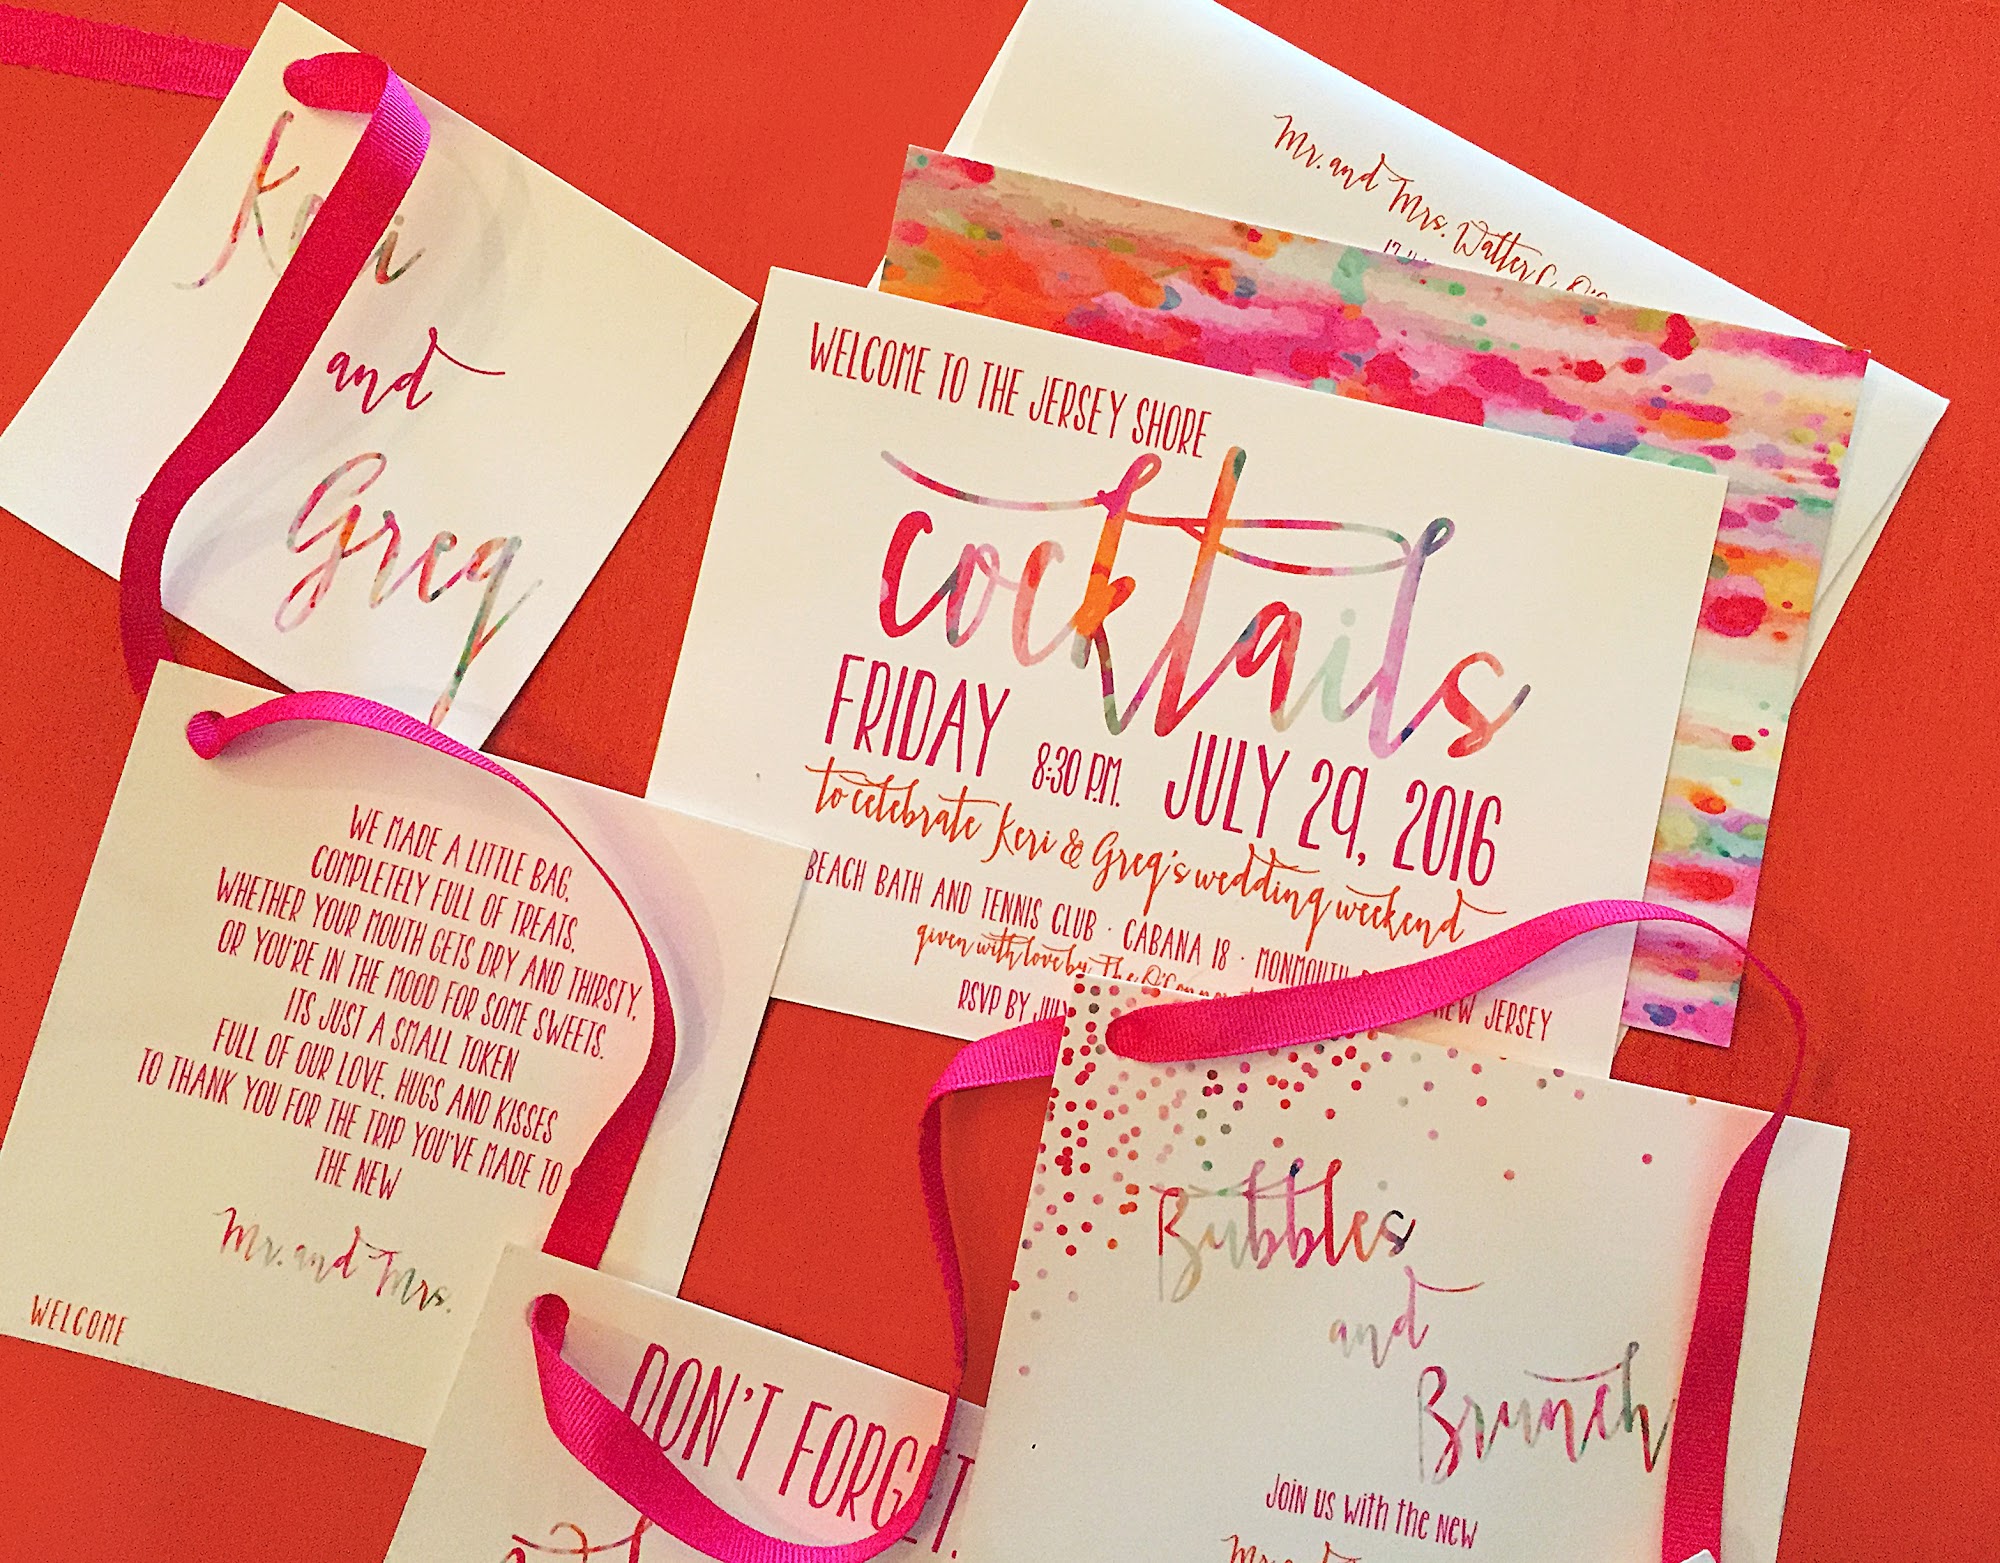 Keri
and
Greg
Mr. and Mrs. Walter C.
WELCOME TO THE JERSEY SHORE
cocktails
FRIDAY 8:30 P.M. JULY 29, 2016
to celebrate Keri & Greg's wedding weekend
BEACH BATH AND TENNIS CLUB · CABANA 18 · MONMOUTH NEW JERSEY
given with love by The
RSVP BY
WE MADE A LITTLE BAG,
COMPLETELY FULL OF TREATS,
WHETHER YOUR MOUTH GETS DRY AND THIRSTY,
OR YOU'RE IN THE MOOD FOR SOME SWEETS.
ITS JUST A SMALL TOKEN
FULL OF OUR LOVE, HUGS AND KISSES
TO THANK YOU FOR THE TRIP YOU'VE MADE TO
THE NEW
Mr. and Mrs.
WELCOME
DON'T FORGET.
Bubbles
and
Brunch
Join us with the new